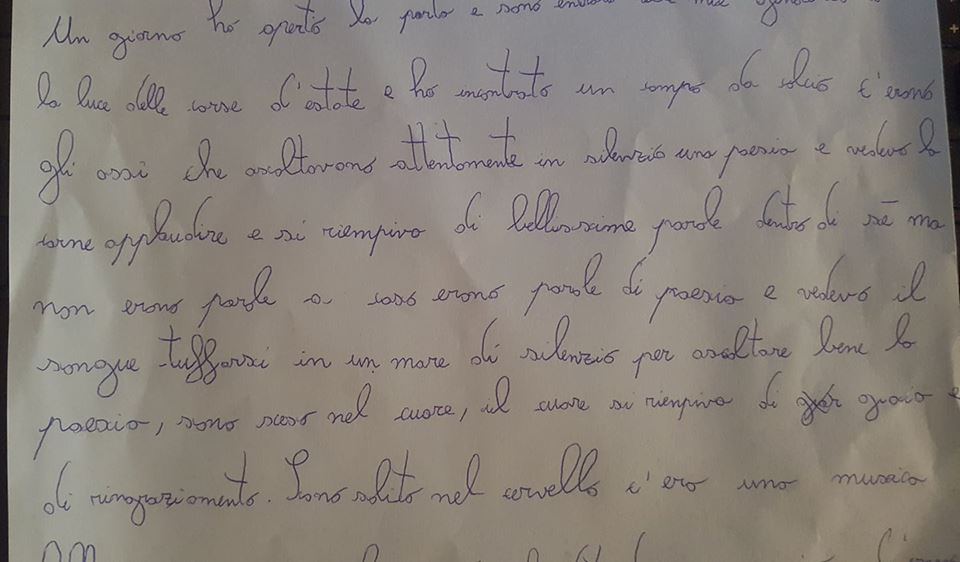 Un giorno ho aperto la porta e sono
la luce delle corse d'estate e ho incontrato un campo da calcio c'erano
gli ossi che ascoltavano attentamente in silenzio una poesia e vedevo la
carne applaudire e si riempiva di bellissime parole dentro di sé ma
non erano parole a caso erano parole di poesia e vedevo il
sangue tuffarsi in un mare di silenzio per ascoltare bene la
poesia, sono sceso nel cuore, il cuore si riempiva di gioia e
di ringraziamento. Sono salito nel cervello c'era una musica